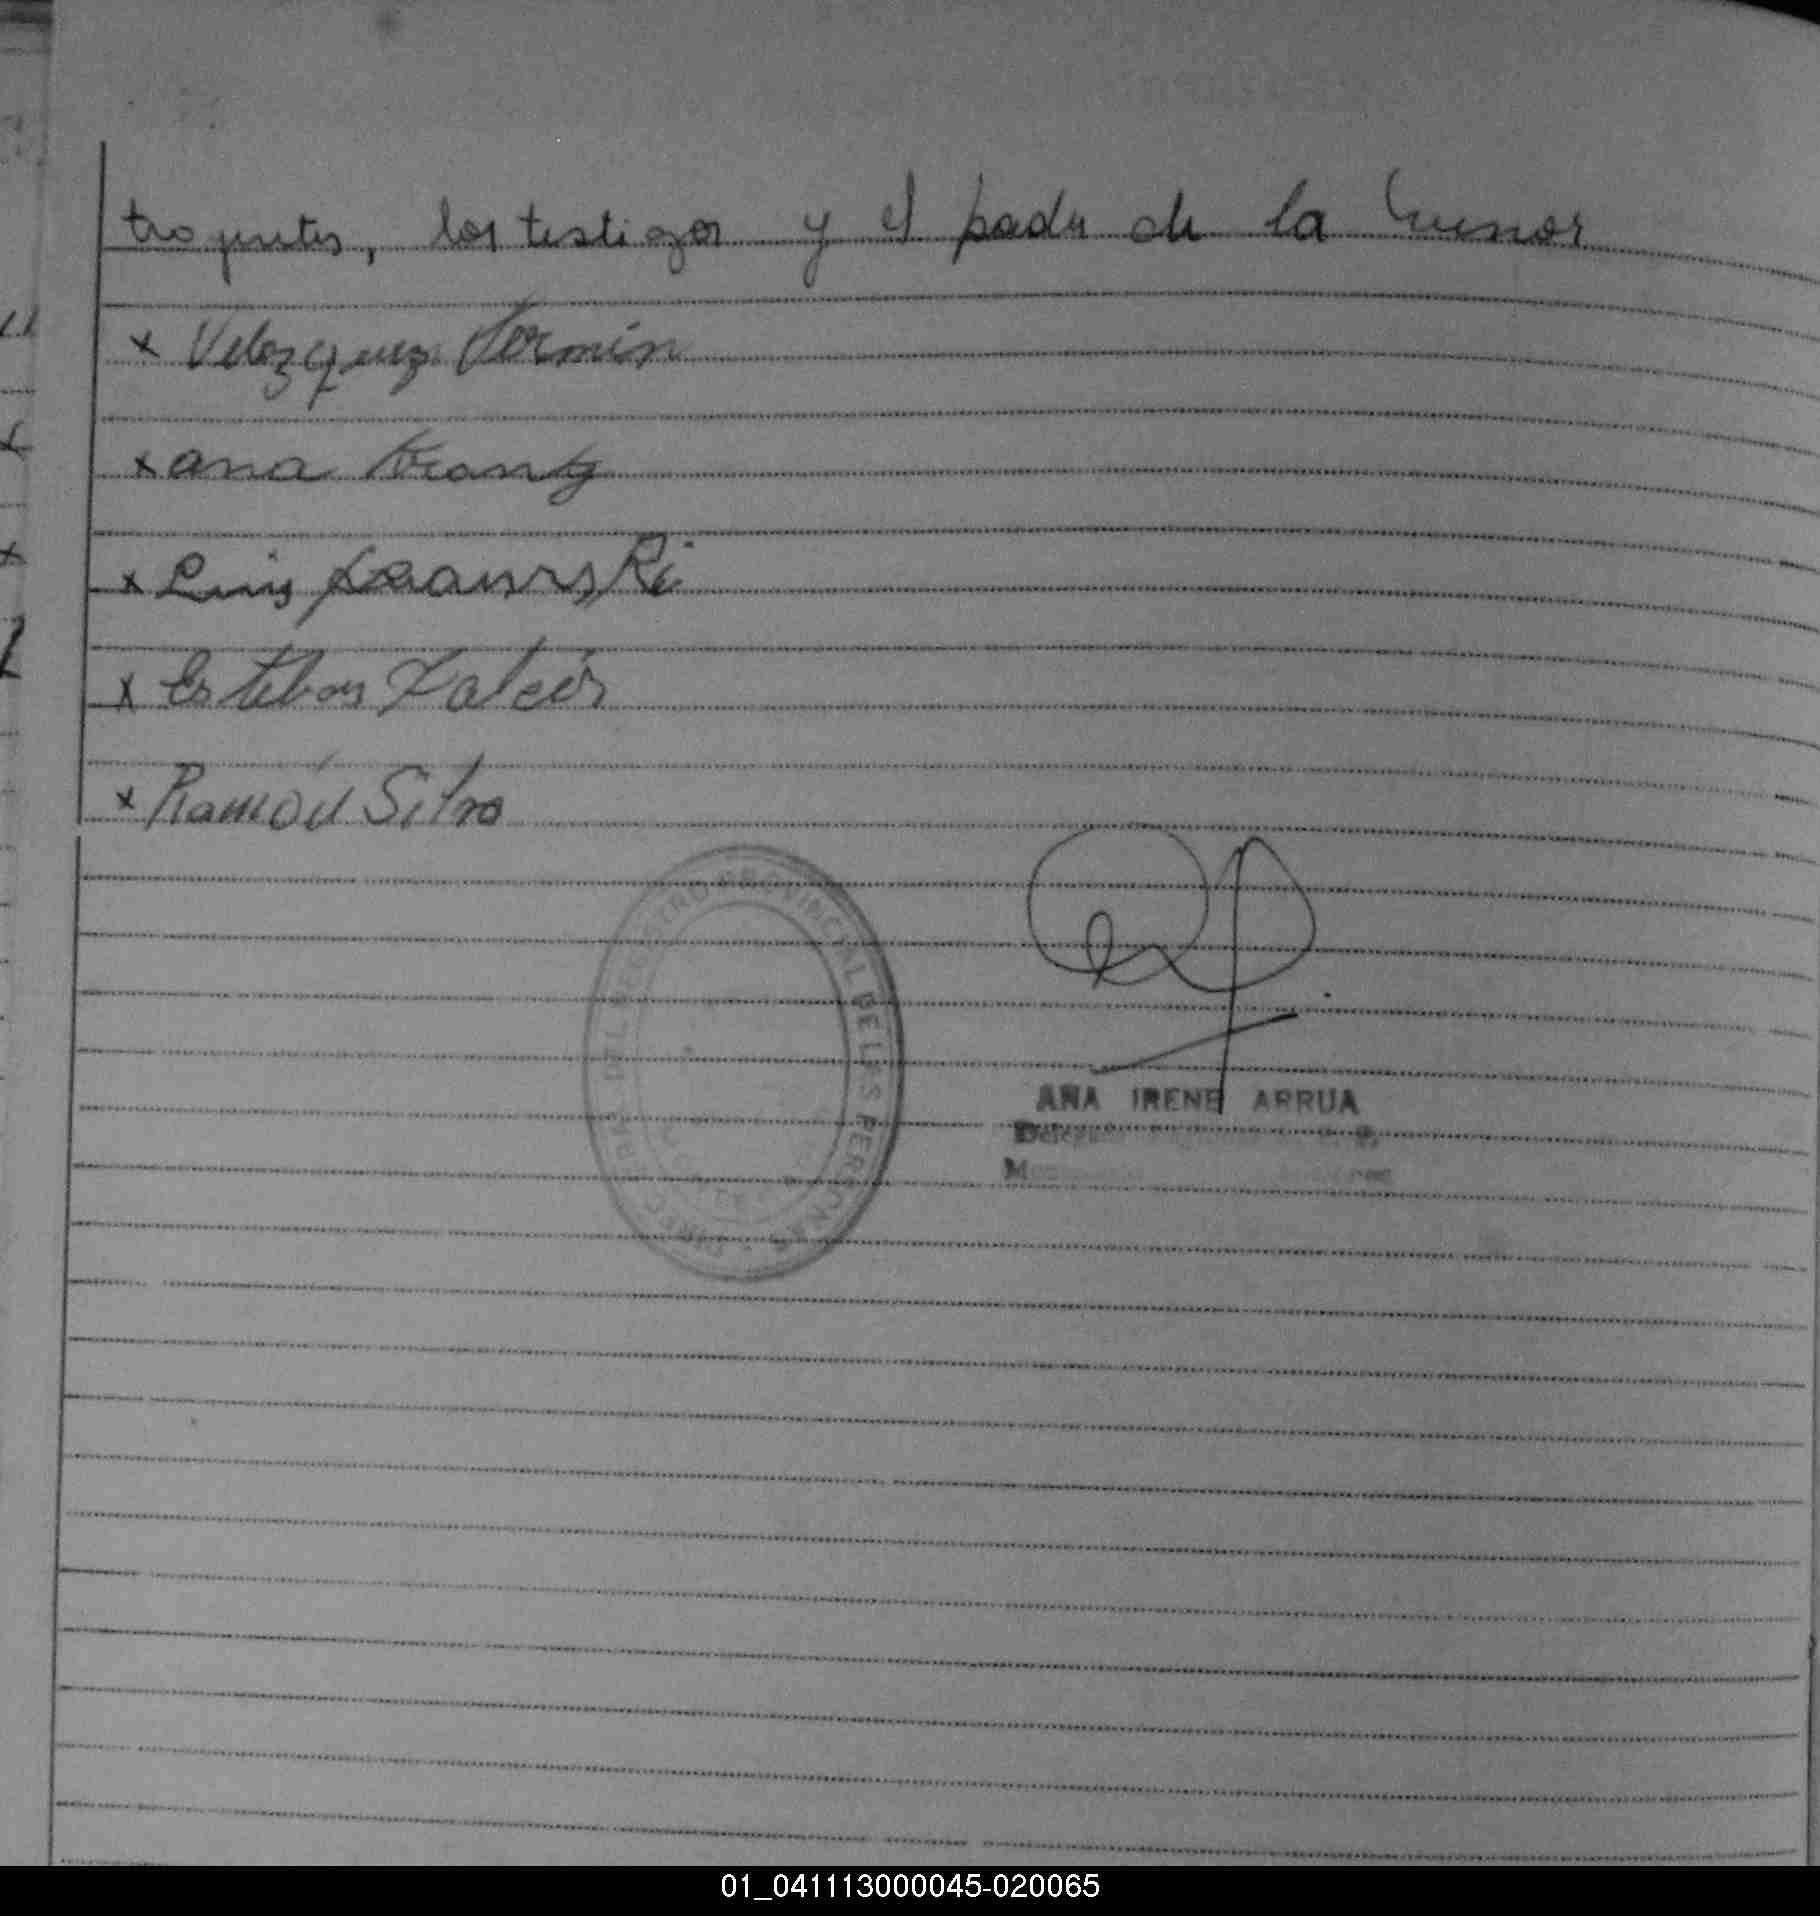 trayentes, los testigos y el padre de la menor
x Velozquez Fermín
x ana Krantz
x Luis
x Esteban
x Ramón Silva
DIREC. GRAL. DEL REGISTRO PROVINCIAL DE LAS PERSONAS
ANA IRENE ARRUA
01_041113000045-020065